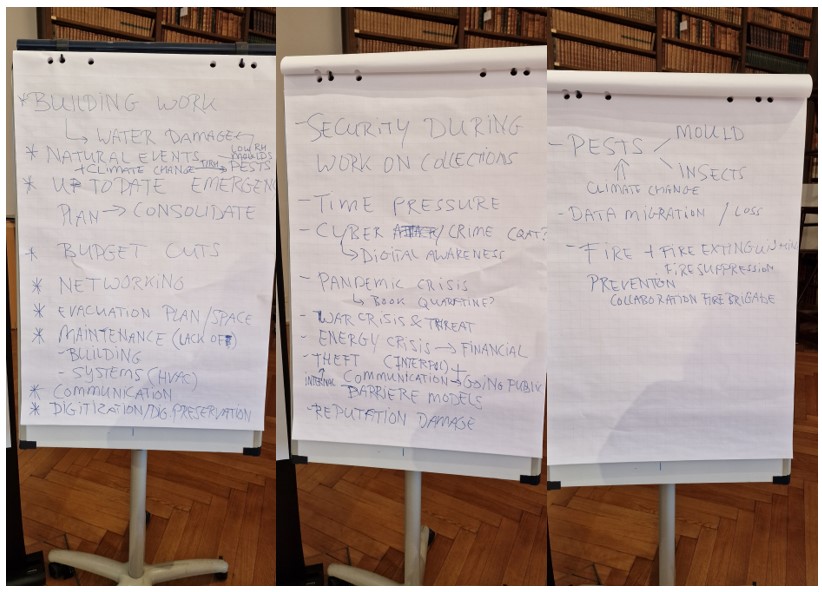 * BUILDING WORK
↳ WATER DAMAGE
* NATURAL EVENTS
LOW RH
MOULDS
+ CLIMATE CHANGE → PESTS
* UP TO DATE EMERGEN
PLAN → CONSOLIDATE
* BUDGET CUTS
* NETWORKING
* EVACUATION PLAN/SPACE
* MAINTENANCE (LACK OF)
- BUILDING
- SYSTEMS (HVAC)
* COMMUNICATION
* DIGITIZATION/DIG. PRESERVATION
- SECURITY DURING
WORK ON COLLECTIONS
- TIME PRESSURE
- CYBER ATTACK / CRIME
↳ DIGITAL AWARENESS
- PANDEMIC CRISIS
↳ BOOK QUARANTINE?
- WAR CRISIS & THREAT
- ENERGY CRISIS → FINANCIAL
- THEFT (INTERPOL) +
INTERNAL COMMUNICATION → GOING PUBLI
- BARRIERE MODELS
- REPUTATION DAMAGE
- PESTS
MOULD
INSECTS
↑
CLIMATE CHANGE
- DATA MIGRATION / LOSS
- FIRE + FIRE EXTINGUISHING
FIRE SUPPRESSION
PREVENTION
COLLABORATION FIRE BRIGADE